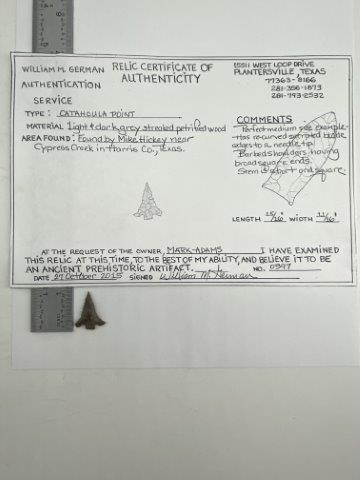 WILLIAM M. GERMAN
AUTHENTICATION
SERVICE
RELIC CERTIFICATE OF
AUTHENTICITY
15511 WEST LOOP DRIVE
PLANTERSVILLE, TEXAS
77363-8166
281-793-2532
TYPE: CATAHOULA POINT
MATERIAL Light & dark grey streaked petrified wood
AREA FOUND: Found by Mike Hickey near
Cypress Creek in Harris Co., Texas.
COMMENTS
Perfect medium size example
Has re-curved serrated blade
edges to a needle tip.
Barbed shoulders having
broad square ends.
Stem is short and square.
LENGTH 15/16" WIDTH 11/16"
AT THE REQUEST OF THE OWNER, MARK ADAMS I HAVE EXAMINED
THIS RELIC AT THIS TIME, TO THE BEST OF MY ABILITY, AND BELIEVE IT TO BE
AN ANCIENT PREHISTORIC ARTIFACT. NO. 0947
DATE 27 October 2015 SIGNED William M.